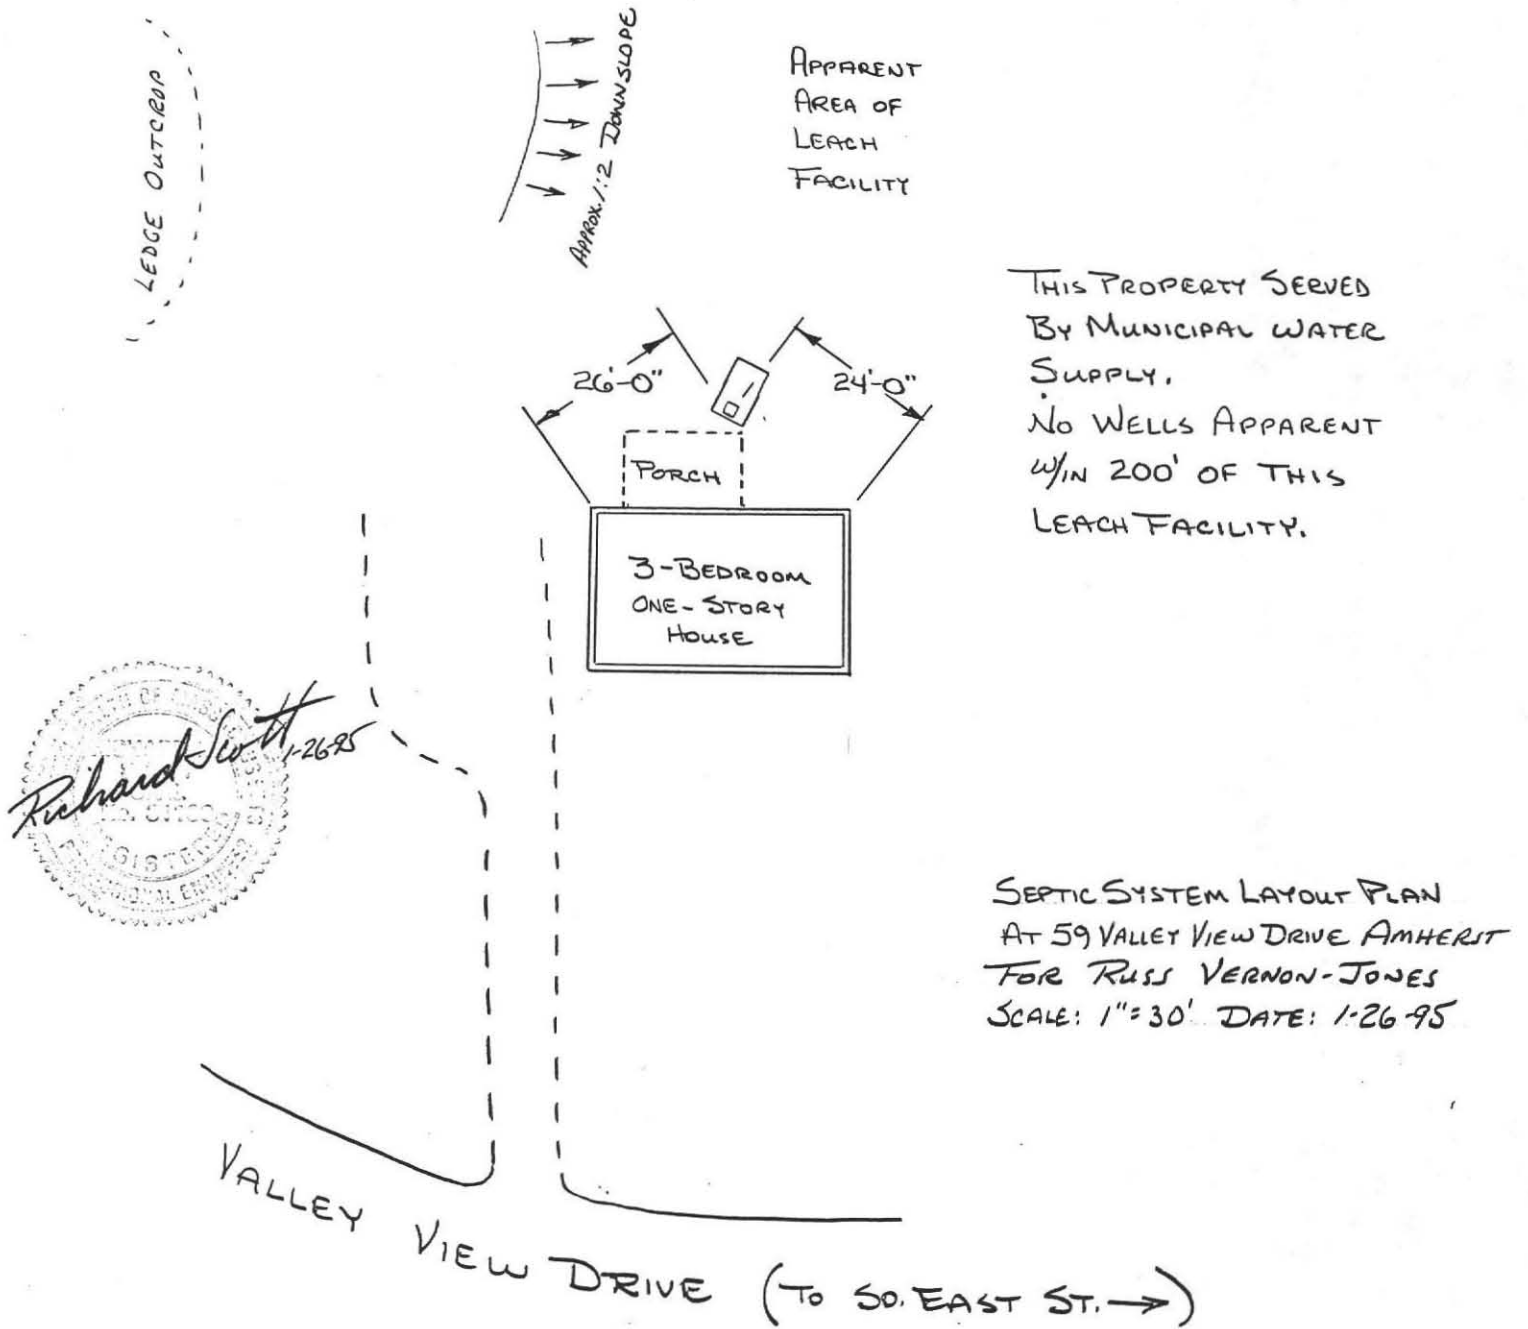 LEDGE OUTCROP
APPROX. 1:2 DOWNSLOPE
APPARENT
AREA OF
LEACH
FACILITY
THIS PROPERTY SERVED
BY MUNICIPAL WATER
SUPPLY.
NO WELLS APPARENT
W/IN 200' OF THIS
LEACH FACILITY.
26'-0"
24'-0"
PORCH
3-BEDROOM
ONE-STORY
HOUSE
Richard Scott
1-26-95
REGISTERED
PROFESSIONAL ENGINEER
SEPTIC SYSTEM LAYOUT PLAN
AT 59 VALLEY VIEW DRIVE AMHERST
FOR RUSS VERNON-JONES
SCALE: 1"=30' DATE: 1-26-95
VALLEY VIEW DRIVE (TO SO. EAST ST. →)